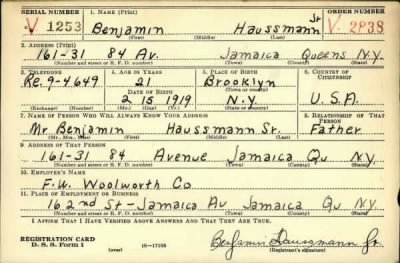 SERIAL NUMBER 1. NAME (Print) ORDER NUMBER
V 1253 Benjamin Haussmann Jr V. 2838
(First) (Middle) (Last)
2. ADDRESS (Print)
161-31 84 Av. Jamaica Queens N.Y.
(Number and street or R. F. D. number) (Town) (County) (State)
3. TELEPHONE 4. AGE IN YEARS 5. PLACE OF BIRTH 6. COUNTRY OF CITIZENSHIP
Re. 9-4649 21 Brooklyn
DATE OF BIRTH (Town or county)
2 15 1919 N.Y. U.S.A.
(Exchange) (Number) (Mo.) (Day) (Yr.) (State or country)
7. NAME OF PERSON WHO WILL ALWAYS KNOW YOUR ADDRESS 8. RELATIONSHIP OF THAT PERSON
Mr Benjamin Haussmann Sr. Father
(Mr., Mrs., Miss) (First) (Middle) (Last)
9. ADDRESS OF THAT PERSON
161-31 84 Avenue Jamaica Qu N.Y.
(Number and street or R. F. D. number) (Town) (County) (State)
10. EMPLOYER'S NAME
F.W. Woolworth Co
11. PLACE OF EMPLOYMENT OR BUSINESS
162nd St-Jamaica Av Jamaica Qu N.Y.
(Number and street or R. F. D. number) (Town) (County) (State)
I AFFIRM THAT I HAVE VERIFIED ABOVE ANSWERS AND THAT THEY ARE TRUE.
REGISTRATION CARD
D. S. S. Form 1 (over) 16-17105 Benjamin Haussmann Jr.
(Registrant's signature)